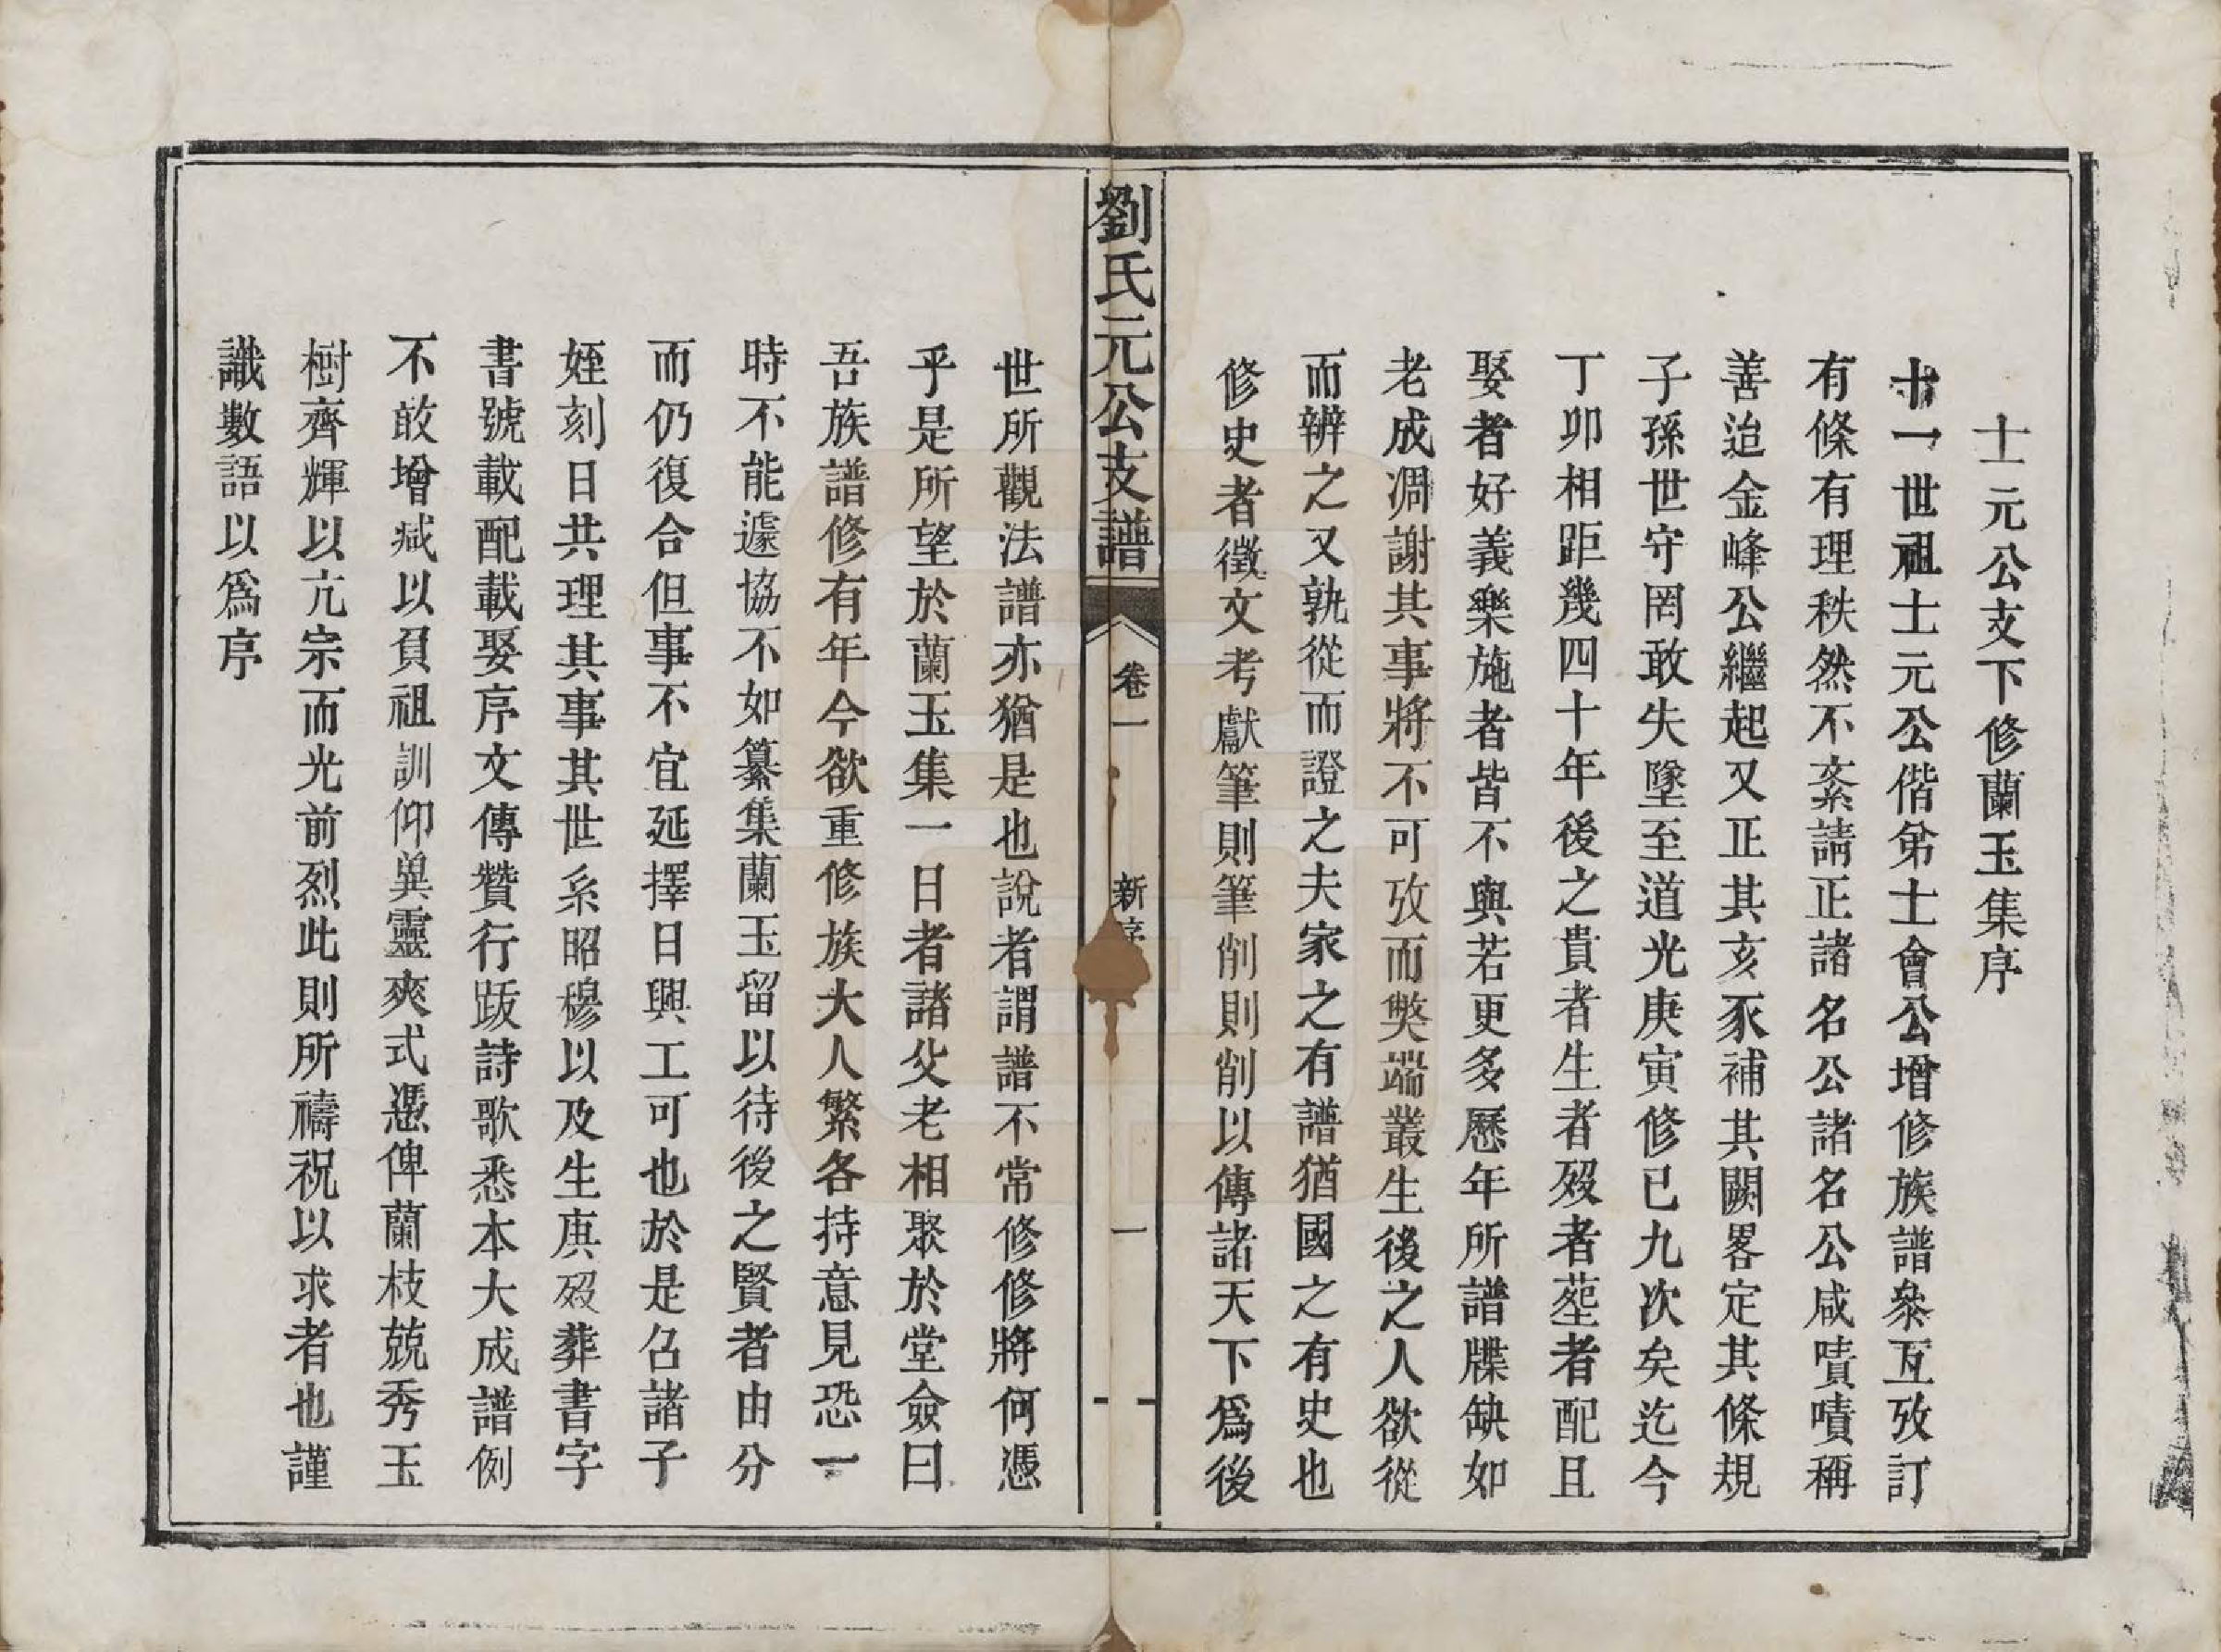 士元公支下修蘭玉集序
十一世祖士元公偕弟士會公增修族譜叅互攷訂
有條有理秩然不紊請正諸名公諸名公咸嘖嘖稱
善迨金峰公繼起又正其亥豕補其闕畧定其條規
子孫世守罔敢失墜至道光庚寅修已九次矣迄今
丁卯相距幾四十年後之貴者生者歿者葬者配且
娶者好義樂施者皆不與若更多歷年所譜牒缺如
老成凋謝其事將不可攷而獘端叢生後之人欲從
而辨之又孰從而證之夫家之有譜猶國之有史也
修史者徵文考獻筆則筆削則削以傳諸天下爲後
劉氏元公支譜
卷一
新序
一
世所觀法譜亦猶是也說者謂譜不常修修將何憑
乎是所望於蘭玉集一日者諸父老相聚於堂僉曰
吾族譜修有年今欲重修族大人繁各持意見恐一
時不能遽協不如纂集蘭玉留以待後之賢者由分
而仍復合但事不宜延擇日興工可也於是召諸子
姪刻日共理其事其世系昭穆以及生庚歿葬書字
書號載配載娶序文傳贊行䟦詩歌悉本大成譜例
不敢增減以負祖訓仰㒷靈爽式憑俾蘭枝兢秀玉
樹齊輝以亢宗而光前烈此則所禱祝以求者也謹
識數語以爲序